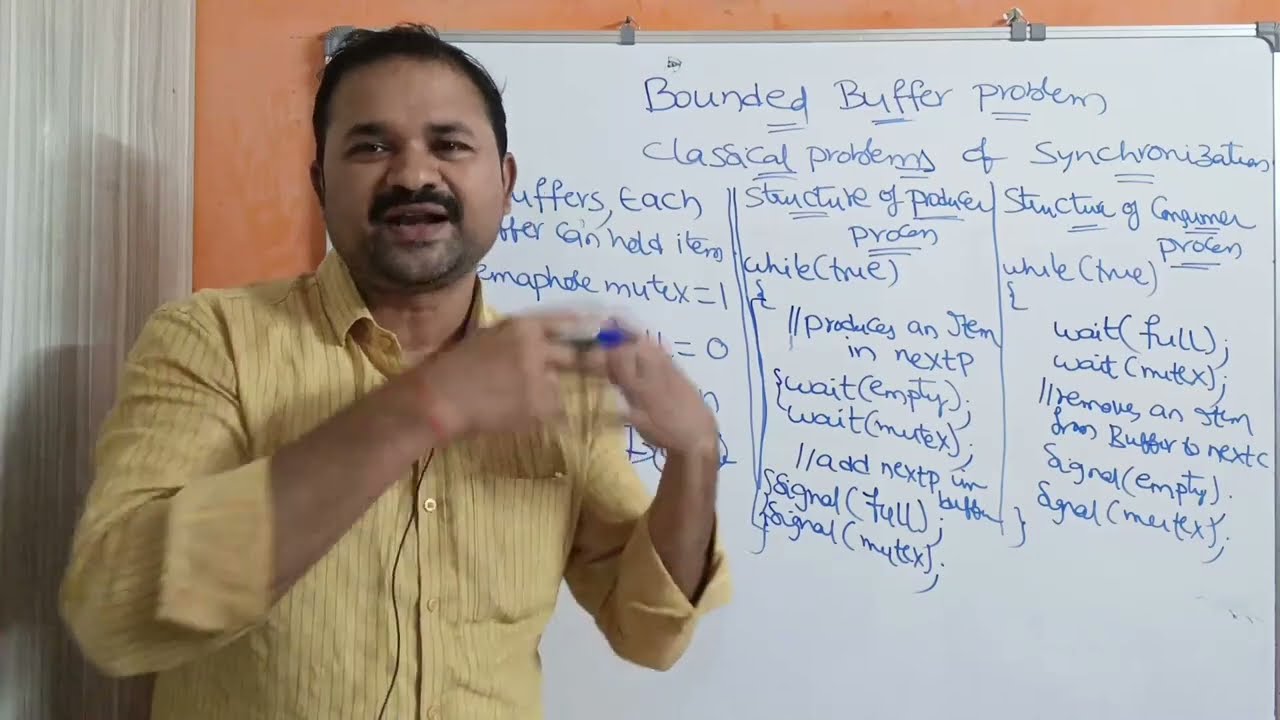 Bounded Buffer problem
Classical problems of Synchronization
uffers, Each
ffer can hold item
emaphore mutex = 1
= 0
n
Structure of producer
process
while(true)
{
//produces an Item
in nextp
wait(empty);
wait(mutex);
//add nextp in
buffer
signal(full);
signal(mutex);
}
Structure of Consumer
process
while(true)
{
wait(full);
wait(mutex);
//removes an Item
from Buffer to nextc
signal(empty);
signal(mutex);
}